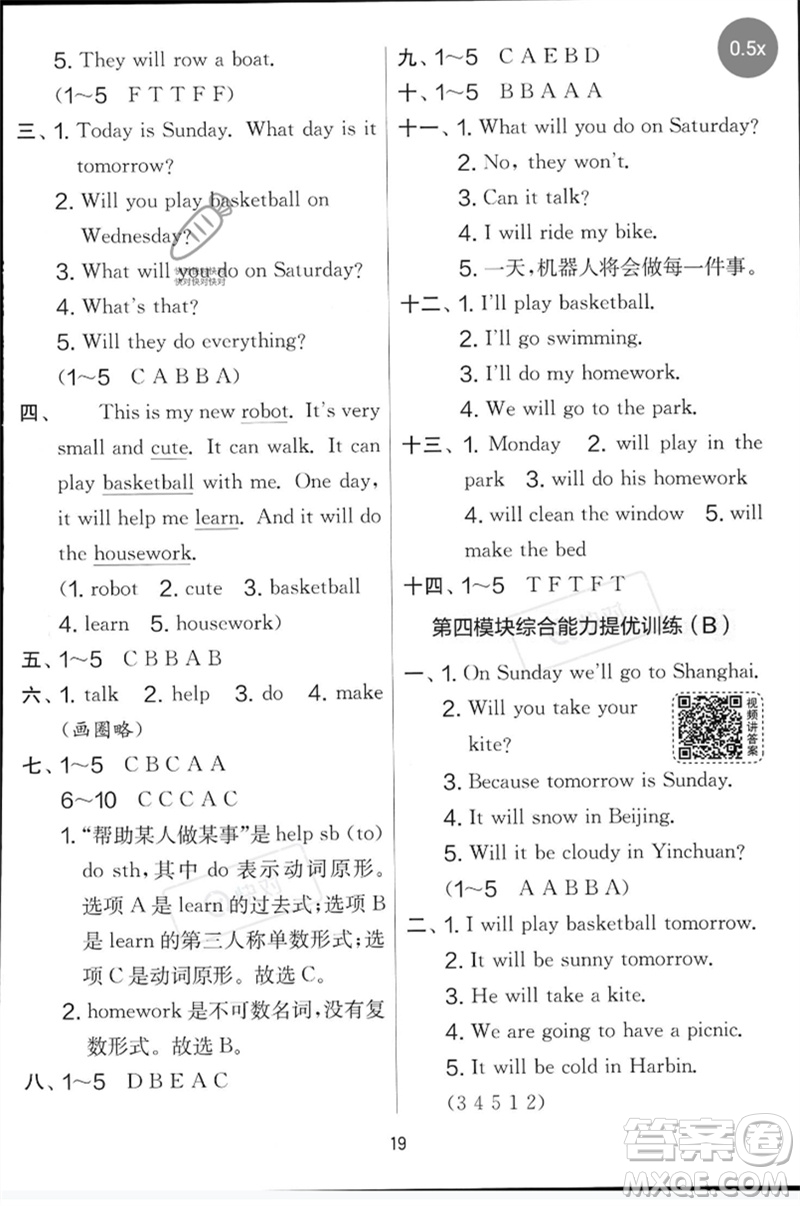 0.5x
5. They will row a boat.
(1～5　F T T F F)
三、1. Today is Sunday. What day is it
tomorrow?
2. Will you play basketball on
Wednesday?
3. What will you do on Saturday?
4. What's that?
5. Will they do everything?
(1～5　C A B B A)
四、　This is my new robot. It's very
small and cute. It can walk. It can
play basketball with me. One day,
it will help me learn. And it will do
the housework.
(1. robot　2. cute　3. basketball
4. learn　5. housework)
五、1～5　C B B A B
六、1. talk　2. help　3. do　4. make
(画图略)
七、1～5　C B C A A
6～10　C C C A C
1. “帮助某人做某事”是 help sb (to)
do sth，其中 do 表示动词原形。
选项 A 是 learn 的过去式；选项 B
是 learn 的第三人称单数形式；选
项 C 是动词原形。故选 C。
2. homework 是不可数名词，没有复
数形式。故选 B。
八、1～5　D B E A C
九、1～5　C A E B D
十、1～5　B B A A A
十一、1. What will you do on Saturday?
2. No, they won't.
3. Can it talk?
4. I will ride my bike.
5. 一天，机器人将会做每一件事。
十二、1. I'll play basketball.
2. I'll go swimming.
3. I'll do my homework.
4. We will go to the park.
十三、1. Monday　2. will play in the
park　3. will do his homework
4. will clean the window　5. will
make the bed
十四、1～5　T F T F T
第四模块综合能力提优训练(B)
一、1. On Sunday we'll go to Shanghai.
2. Will you take your
kite?
视频讲答案
3. Because tomorrow is Sunday.
4. It will snow in Beijing.
5. Will it be cloudy in Yinchuan?
(1～5　A A B B A)
二、1. I will play basketball tomorrow.
2. It will be sunny tomorrow.
3. He will take a kite.
4. We are going to have a picnic.
5. It will be cold in Harbin.
(3 4 5 1 2)
19
快对快对快对
快对快对快对
快对
快对
答案卷
MXQE.COM